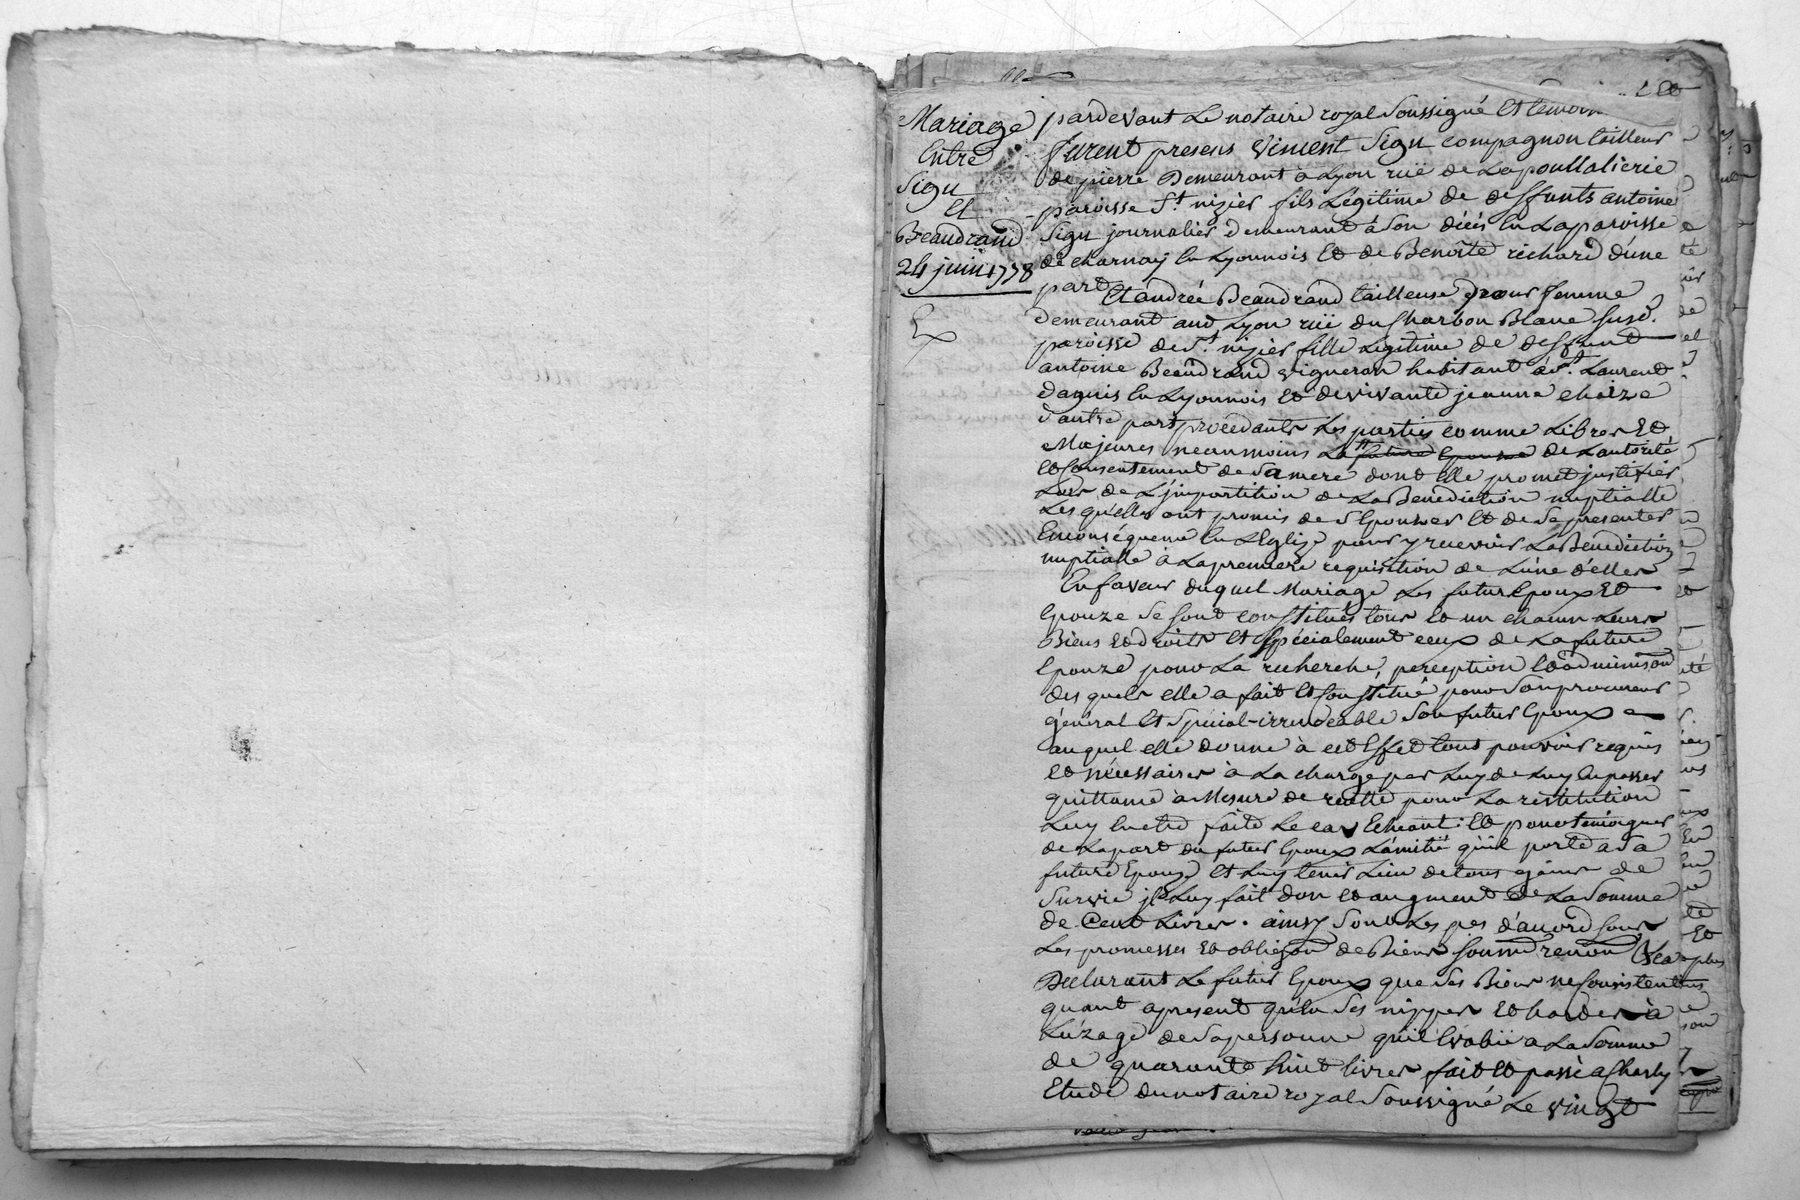 Mariage
Entre
Sigu
et
Beaudrand
24 juin 1778
pardevant Le notaire royal Soussigné Et temoin
furent presens Vincent Sigu compagnon tailleur
de pierre Demeurant à Lyon rüe de La poullalierie
paroisse St. nizier fils Légitime de deffunts antoine
Sigu journalier demeurant à Son décés En La paroisse
de charnay En Lyonnois Et de Benoite richard d'une
part
Et andrée Beaudrand tailleuse pour femme
demeurant aud. Lyon rüe du Charbon Blanc susd.
paroisse de St. nizier fille Légitime de deffunt
antoine Beaudrand vigneron habitant à St. Laurent
dagnis En Lyonnois Et de vivante jeanne
d'autre part procédants Les parties comme Libres Et
Majeures neanmoins La future Epouse de L'autorité
Et Consentement de Sa mere dont Elle promet justifier
Lors de L'jmpartition de La Benediction nuptialle
Les quelles ont promis de S'Epouser Et de Se presenter
En conséquence En L'Eglize pour y recevoir La Bénédiction
nuptialle à La premiere requisition de L'une d'elles
En faveur duquel Mariage Les futur Epoux Et
Epouze Se Sont constitués tous Et un chacun Leurs
Biens Et droits Et Spécialement ceux de La future
Epouze pour La recherche, perception Et adminison
des quels elle a fait Et Constitué pour Son procureur
général Et Spécial irrevocable Son futur Epoux
auquel elle donne à cet Effet tous pouvoirs requis
Et nécessaires à La charge par Luy de Luy En passer
quittance à Mesure de recette pour La restitution
Luy En etre faite Le cas Echeant. Et pour temoigner
de La part du futur Epoux L'amitié qu'il porte a Sa
future Epouze Et Luy tenir Lieu de tous gains de
Survie jl Luy fait don Et augment de La Somme
de Cent Livres. ainsy Sont Les pes d'accord Sous
Les promesses Et obligaon de Biens Soumon renon Ctca
Déclarant Le futur Epoux que Ses Biens ne Consistent
quant apresent qu'En Ses nippes Et hardes à
L'uzage de Sa personne qu'il Evalüe a La Somme
de quarante huit livres fait Et passé a Charly
Etude du notaire royal Soussigné Le vingt